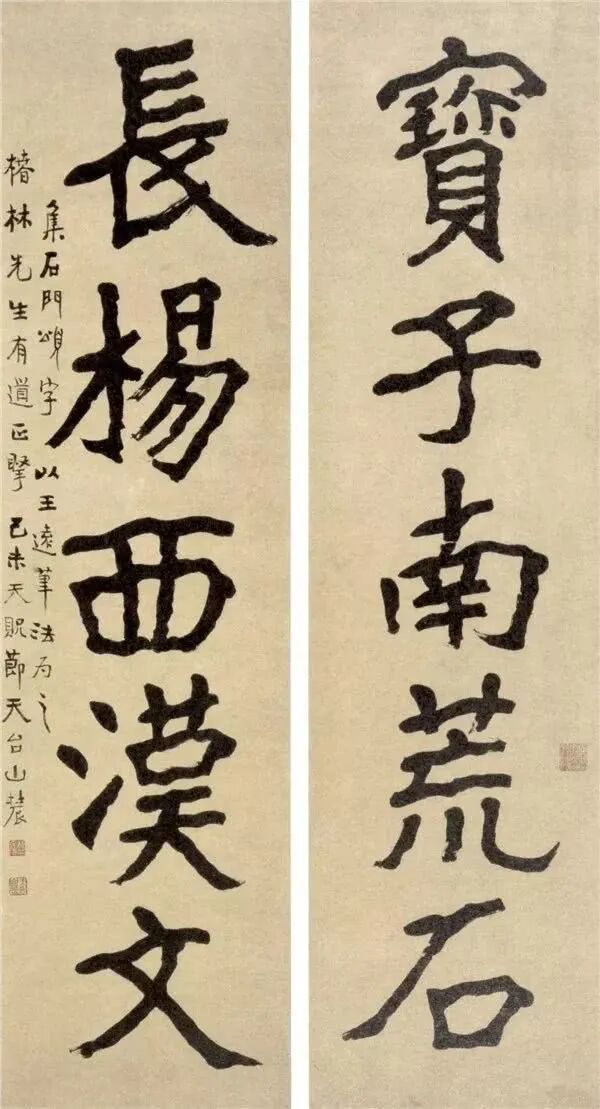 寶子南荒石
長楊西漢文
集石門頌字以王遠筆法为之
椿林先生有道正己未天貺節天台山農